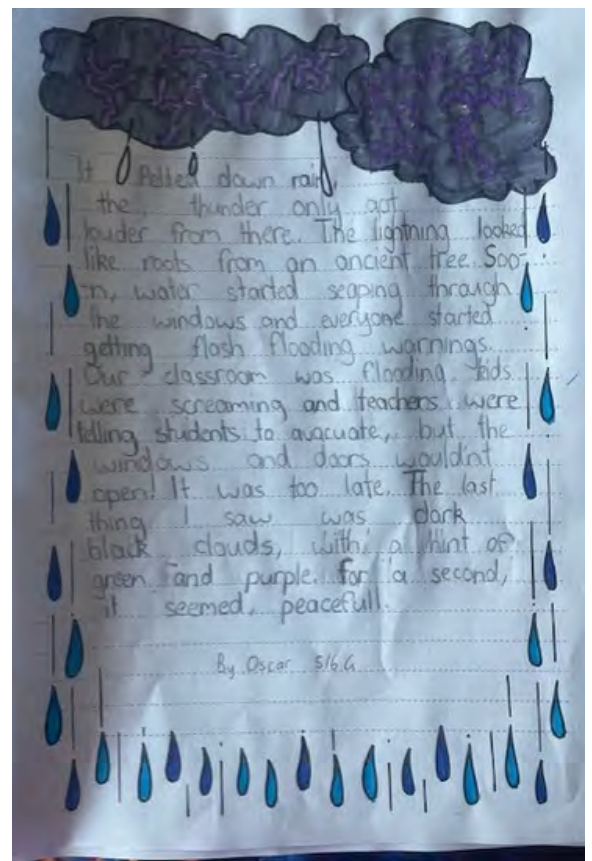 It Pelted down rain,
the, thunder only got
louder from there. The lightning looked
like roots from an ancient tree. Soo-
-n, water started seaping through
the windows and everyone started
getting flash flooding warnings.
Our classroom was flooding. kids
were screaming and teachers were
telling students to avacuate, but the
windows and doors wouldn't
open! It was too late. The last
thing I saw was dark
black clouds, with a hint of
green and purple. for a second,
it seemed, peacefull.
By Oscar 5/6.G